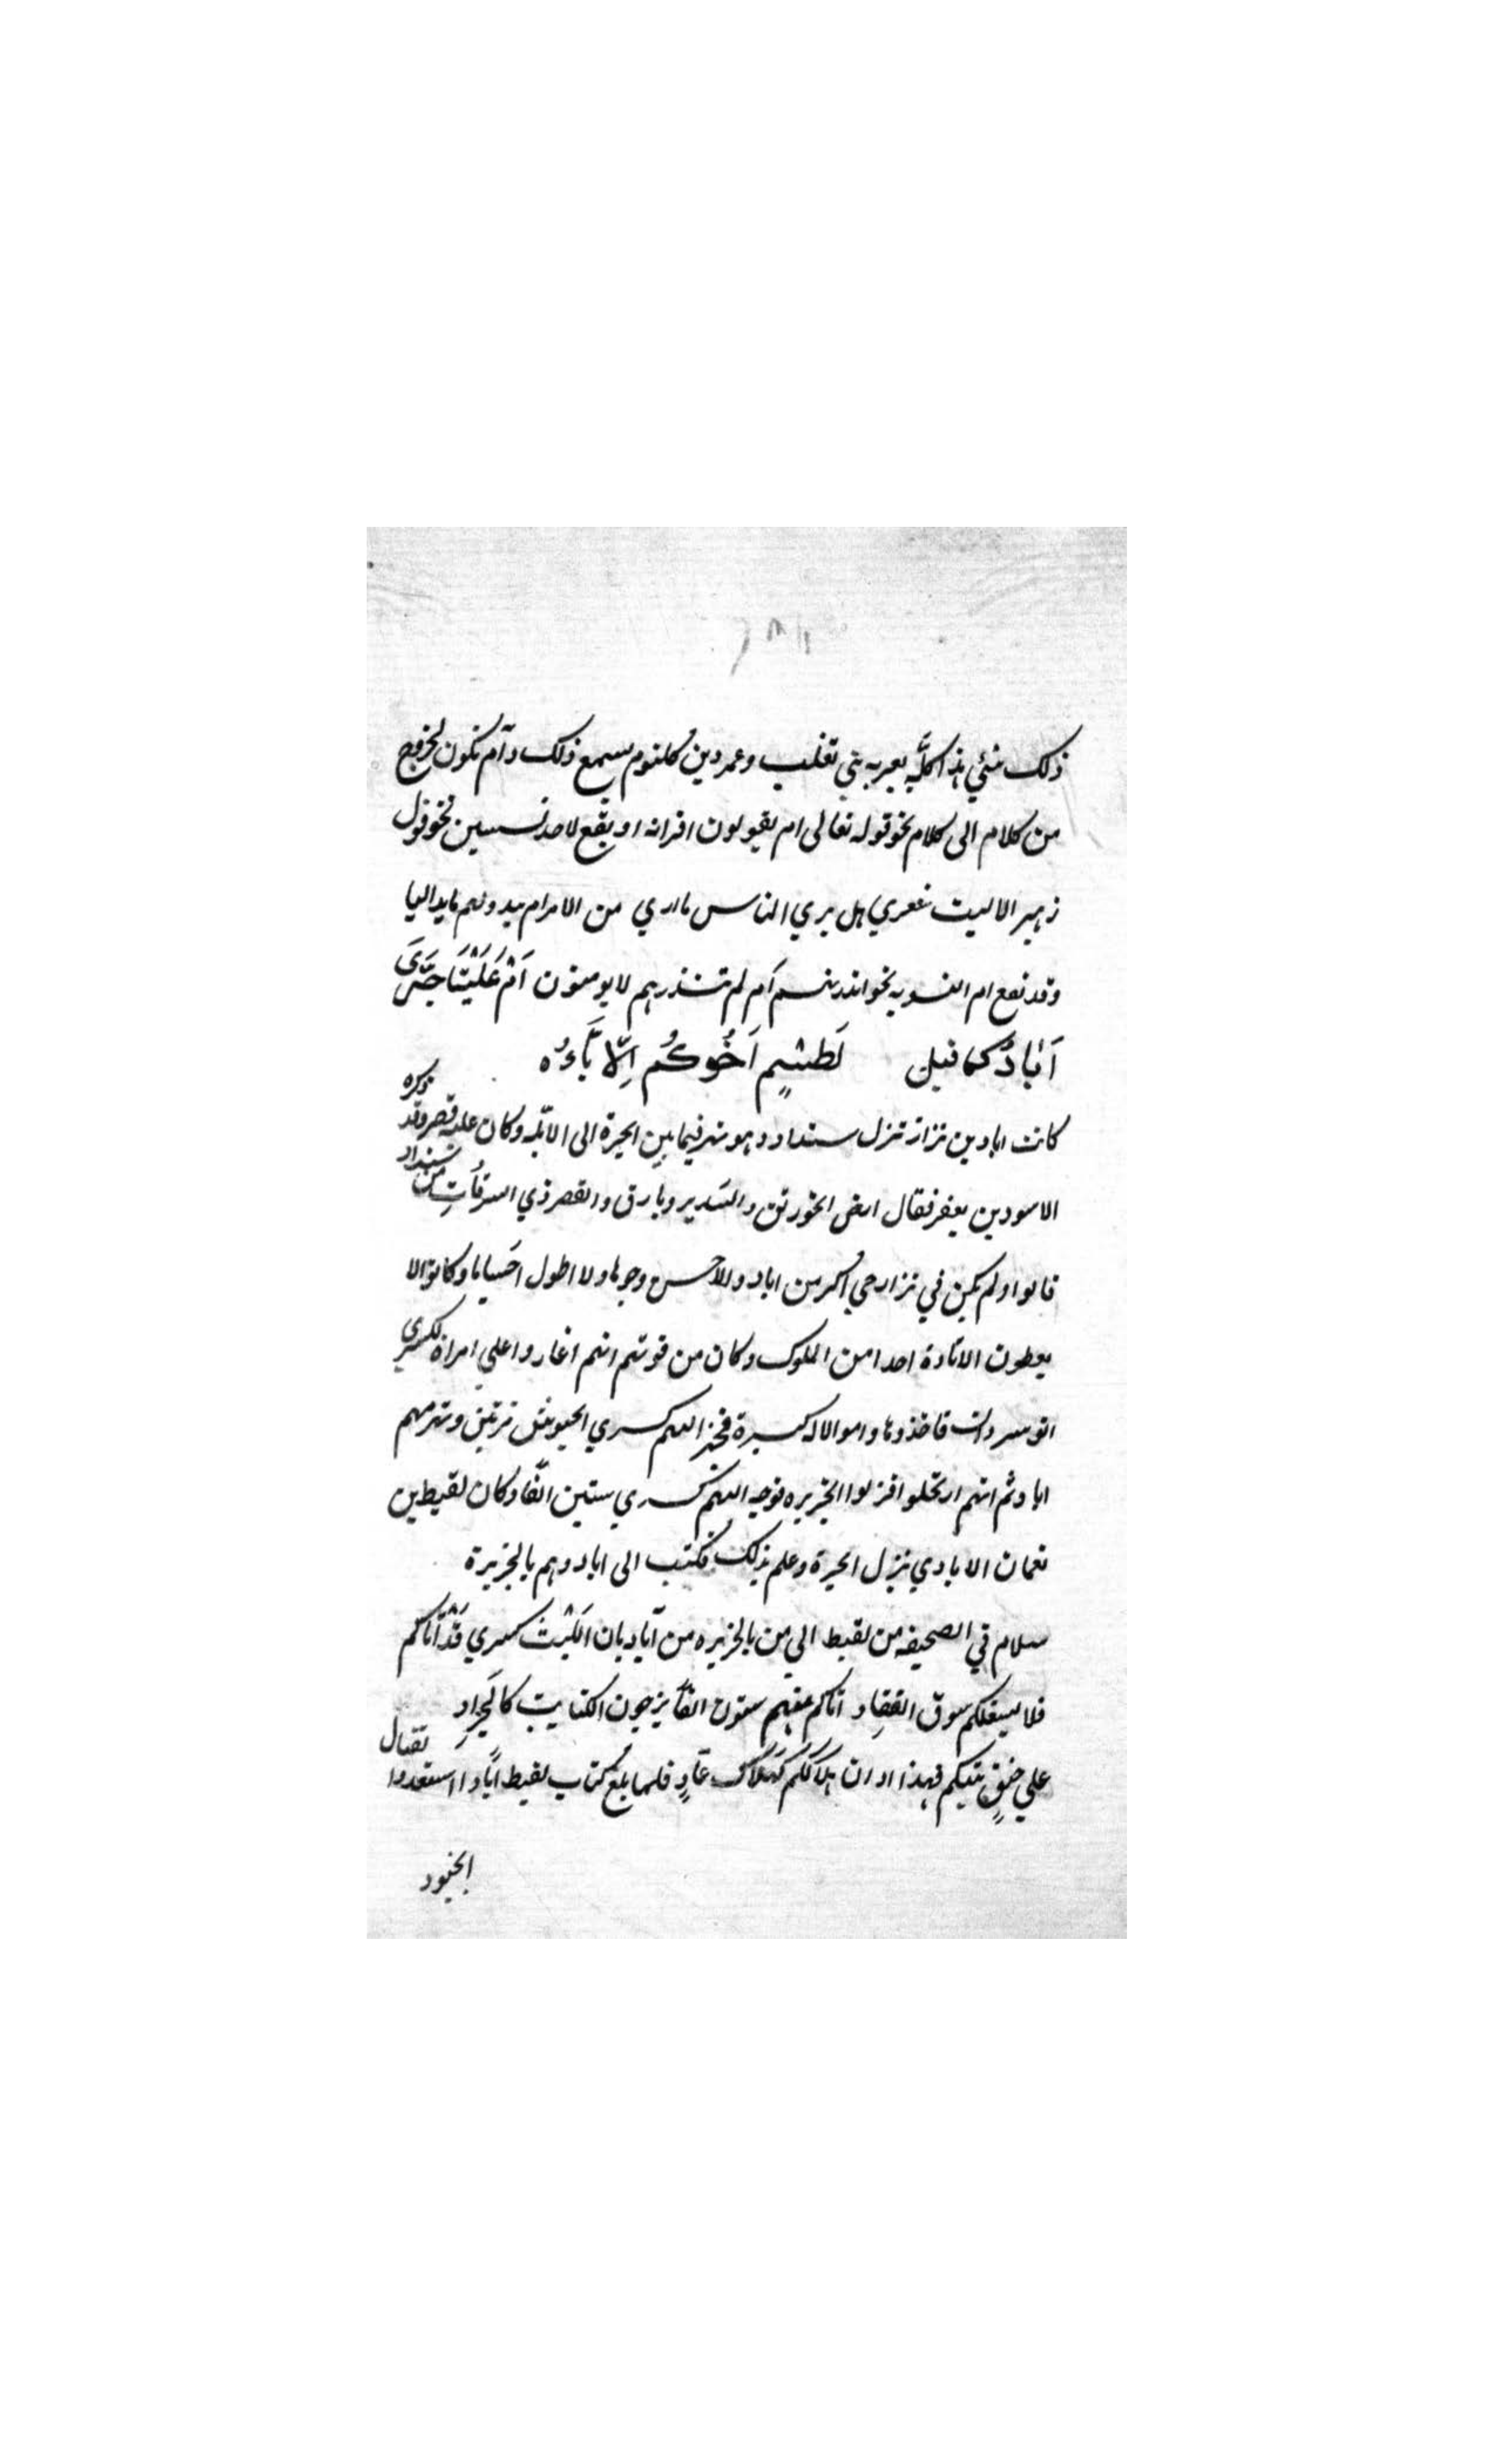 ذلك شئي هذا كلَّه يعير به بني تغلب وعمرو بن كلثوم يسمع ذلك وآم تكون لخروج
من كلام الى كلام نحو قوله تعالى ام يقولون افتراه او يقع لاحد نحو قول
زهير الا ليت شعري هل يري الناس ما اري من الامر ام يبدو لهم ما بدا ليا
وقد تقع ام التسويه نحو انذرتهم آم لم تنذرهم لا يومنون اَمْ عَلَيْنَا جَرَّى
اَيَادٌ كما قيل لَطسْمٍ اَخُوكُم اَلِاّ بَّاءُه
كانت اياد بن نزار تنزل سنداد وهو نهر فيما بين الحيرة الى الابّله وكان عليه قصر وقد ذكره
الاسود بن يعفر فقال ارض الخورنق والسَدير وبارق والقصر ذي الشرفُاتِ من سنداد
قالوا ولم يكن في نزار حي اكثر من اياد ولا احسن وجوها ولا اطول اجَساما وكانوا لا
يعطون الاتاوة احدا من الملوك وكان من قوتهم انهم اغاروا علي امراة لكسري
انوسروان فاخذوها واموالا له كثيرة فجهز اليهم كسري الجيوش مرتين وتهزمهم
اياد ثم انهم ارتحلوا فنزلوا الجزيره فوجه اليهم كسري ستين الفًا وكان لقيط بن
نعمان الايادي نزل الحيرة وعلم بذلك فكتب الى اياد وهم بالجزيرة
سلام في الصحيفه من لقيط الي من بالجزيره من آياد بان الَليْث كسري قَدْ اَتاكم
فلا يشغلكم سوق النقِادِ اتاكم منهم ستون الفًا يزجون الكتايب كالَجرادِ
علي حنقٍ تيكم فهذا اوان هلاككم كَهَلاك عَّادٍ فلما بلغ كتاب لقيط ايًّادا استعدوا لقتال
الجنود